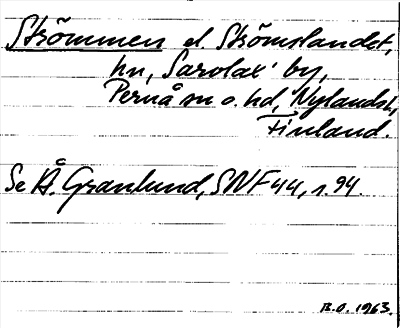 Strömmen el. Strömslandet,
hn, Sarolax' by,
Pernå sn o. hd, Nylands l.,
Finland.
Se Å. Granlund, SNF 44, s. 94.
B.O. 1963.